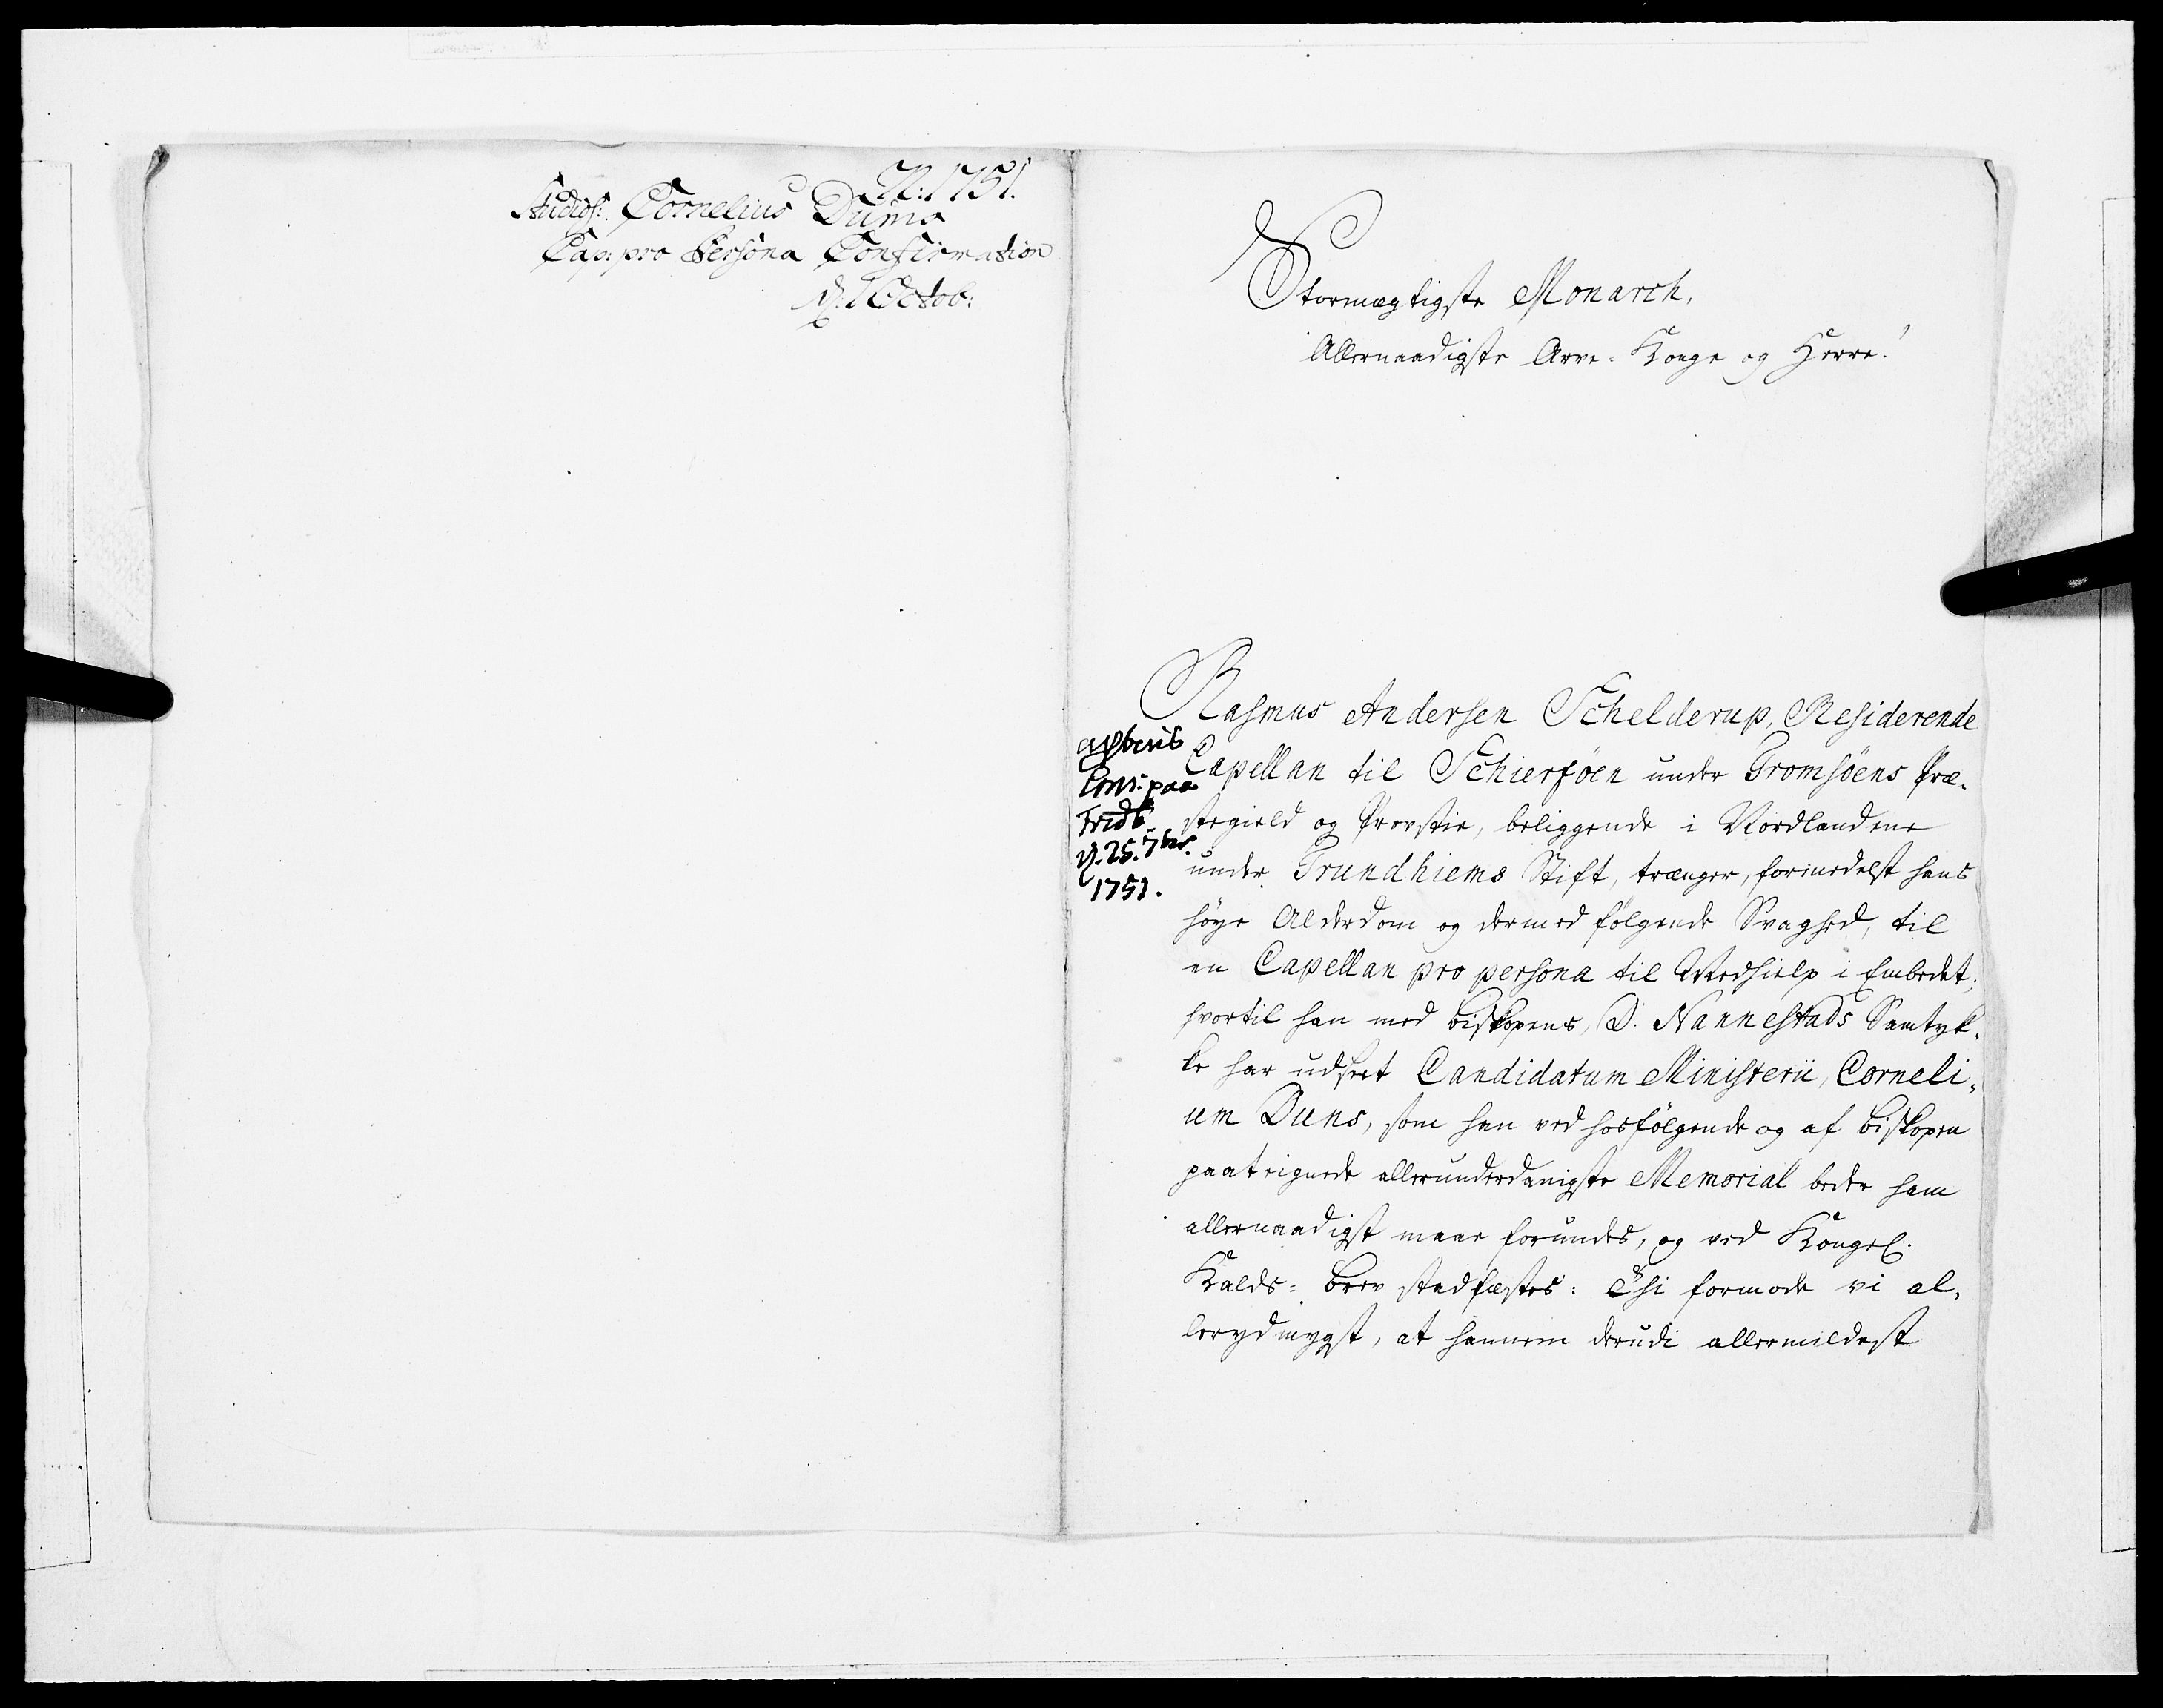 N: 1751.
Studios: Cornelius Duns
Cap: pro Persona Confirmation
d. 1 Octob:
Stormægtigste Monarch,
Allernaadigste Arve-Konge og Herre!
Rasmus Andersen Schelderup, Residerende
Capellan til Schierföen under Tromsöens Præ-
stegield og Provstie, beliggende i Nordlandene
under Trundhiems Stift, trænger, formedelst hans
höye Alderdom og dermed fölgende Svaghed, til
en Capellan pro persona til Medhielp i Embedet;
hvortil han med Biskopens, D. Nannestads Samtyk-
ke har udseet Candidatum Ministerii, Corneli-
um Duns, som han ved hosfölgende og af Biskopen
paategnede allerunderdanigste Memorial beder ham
allernaadigst maae forundes, og ved Kongel.
Kalds-Brev stadfæstes: Thi formode vi al-
lerydmygst, at hannem derudi allermildest
approb: i
Cons: paa
Fridb.
d. 25. 7br.
1751.